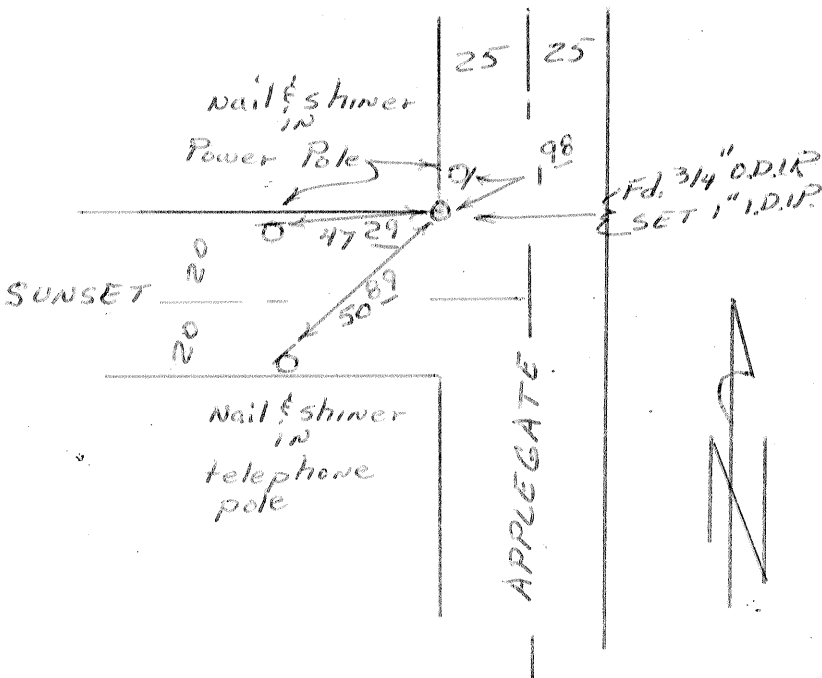 25 25
Nail & Shiner
IN
Power Pole
1 98
Fd. 3/4" O.D.I.P.
& SET 1" I.D.I.P.
47 29
20
SUNSET
50 89
20
Nail & Shiner
IN
telephone
pole
APPLEGATE
N